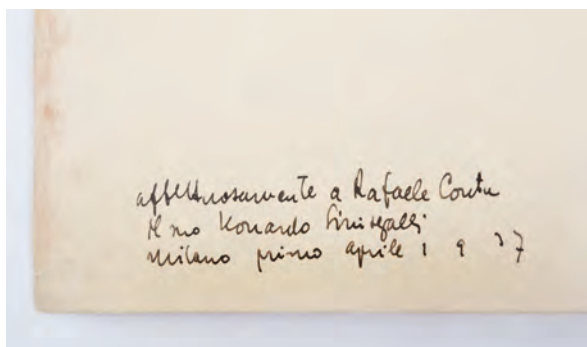 affettuosamente a Rafaele Contu
il suo Leonardo Sinisgalli
Milano primo aprile 1937